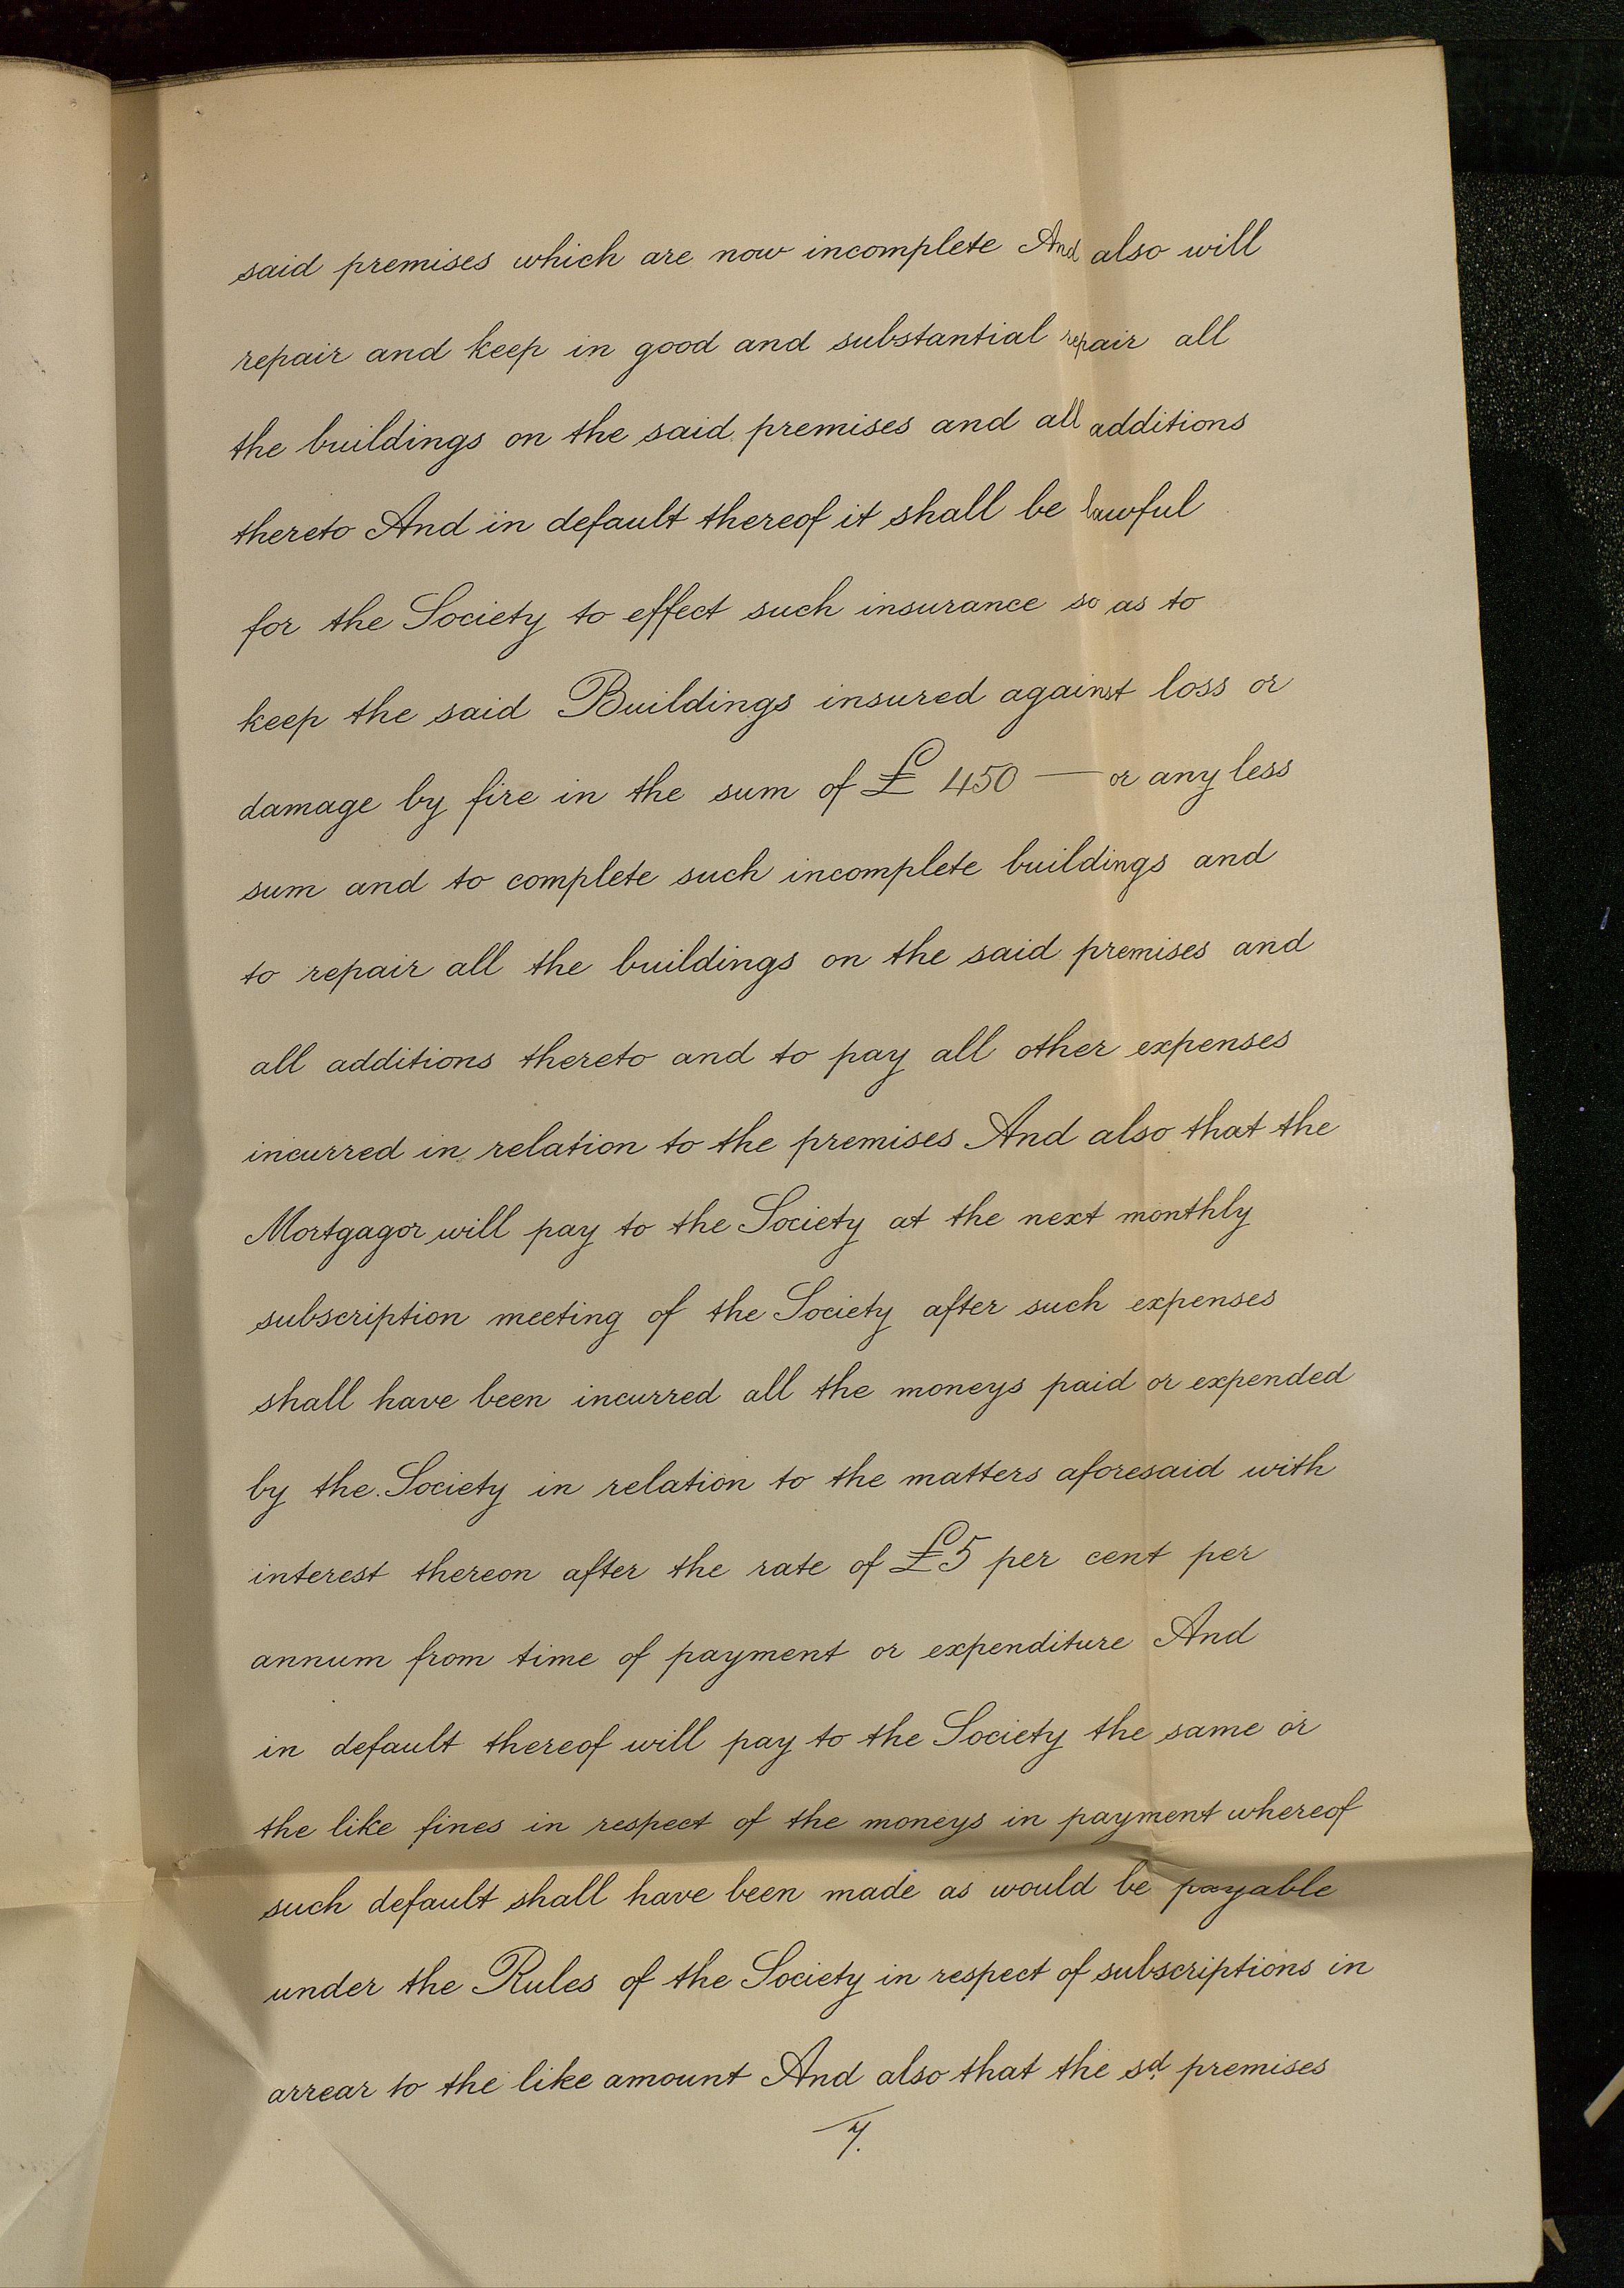 said premises which are now incomplete And also will
repair and keep in good and substantial repair all
the buildings on the said premises and all additions
thereto And in default thereof it shall be lawful
for the Society to effect such insurance so as to
keep the said Buildings insured against loss or
damage by fire in the sum of £ 450 — or any less
sum and to complete such incomplete buildings and
to repair all the buildings on the said premises and
all additions thereto and to pay all other expenses
incurred in relation to the premises And also that the
Mortgagor will pay to the Society at the next monthly
subscription meeting of the Society after such expenses
shall have been incurred all the moneys paid or expended
by the Society in relation to the matters aforesaid with
interest thereon after the rate of £5 per cent per
annum from time of payment or expenditure And
in default thereof will pay to the Society the same or
the like fines in respect of the moneys in payment whereof
such default shall have been made as would be payable
under the Rules of the Society in respect of subscriptions in
arrear to the like amount And also that the sd. premises
7.